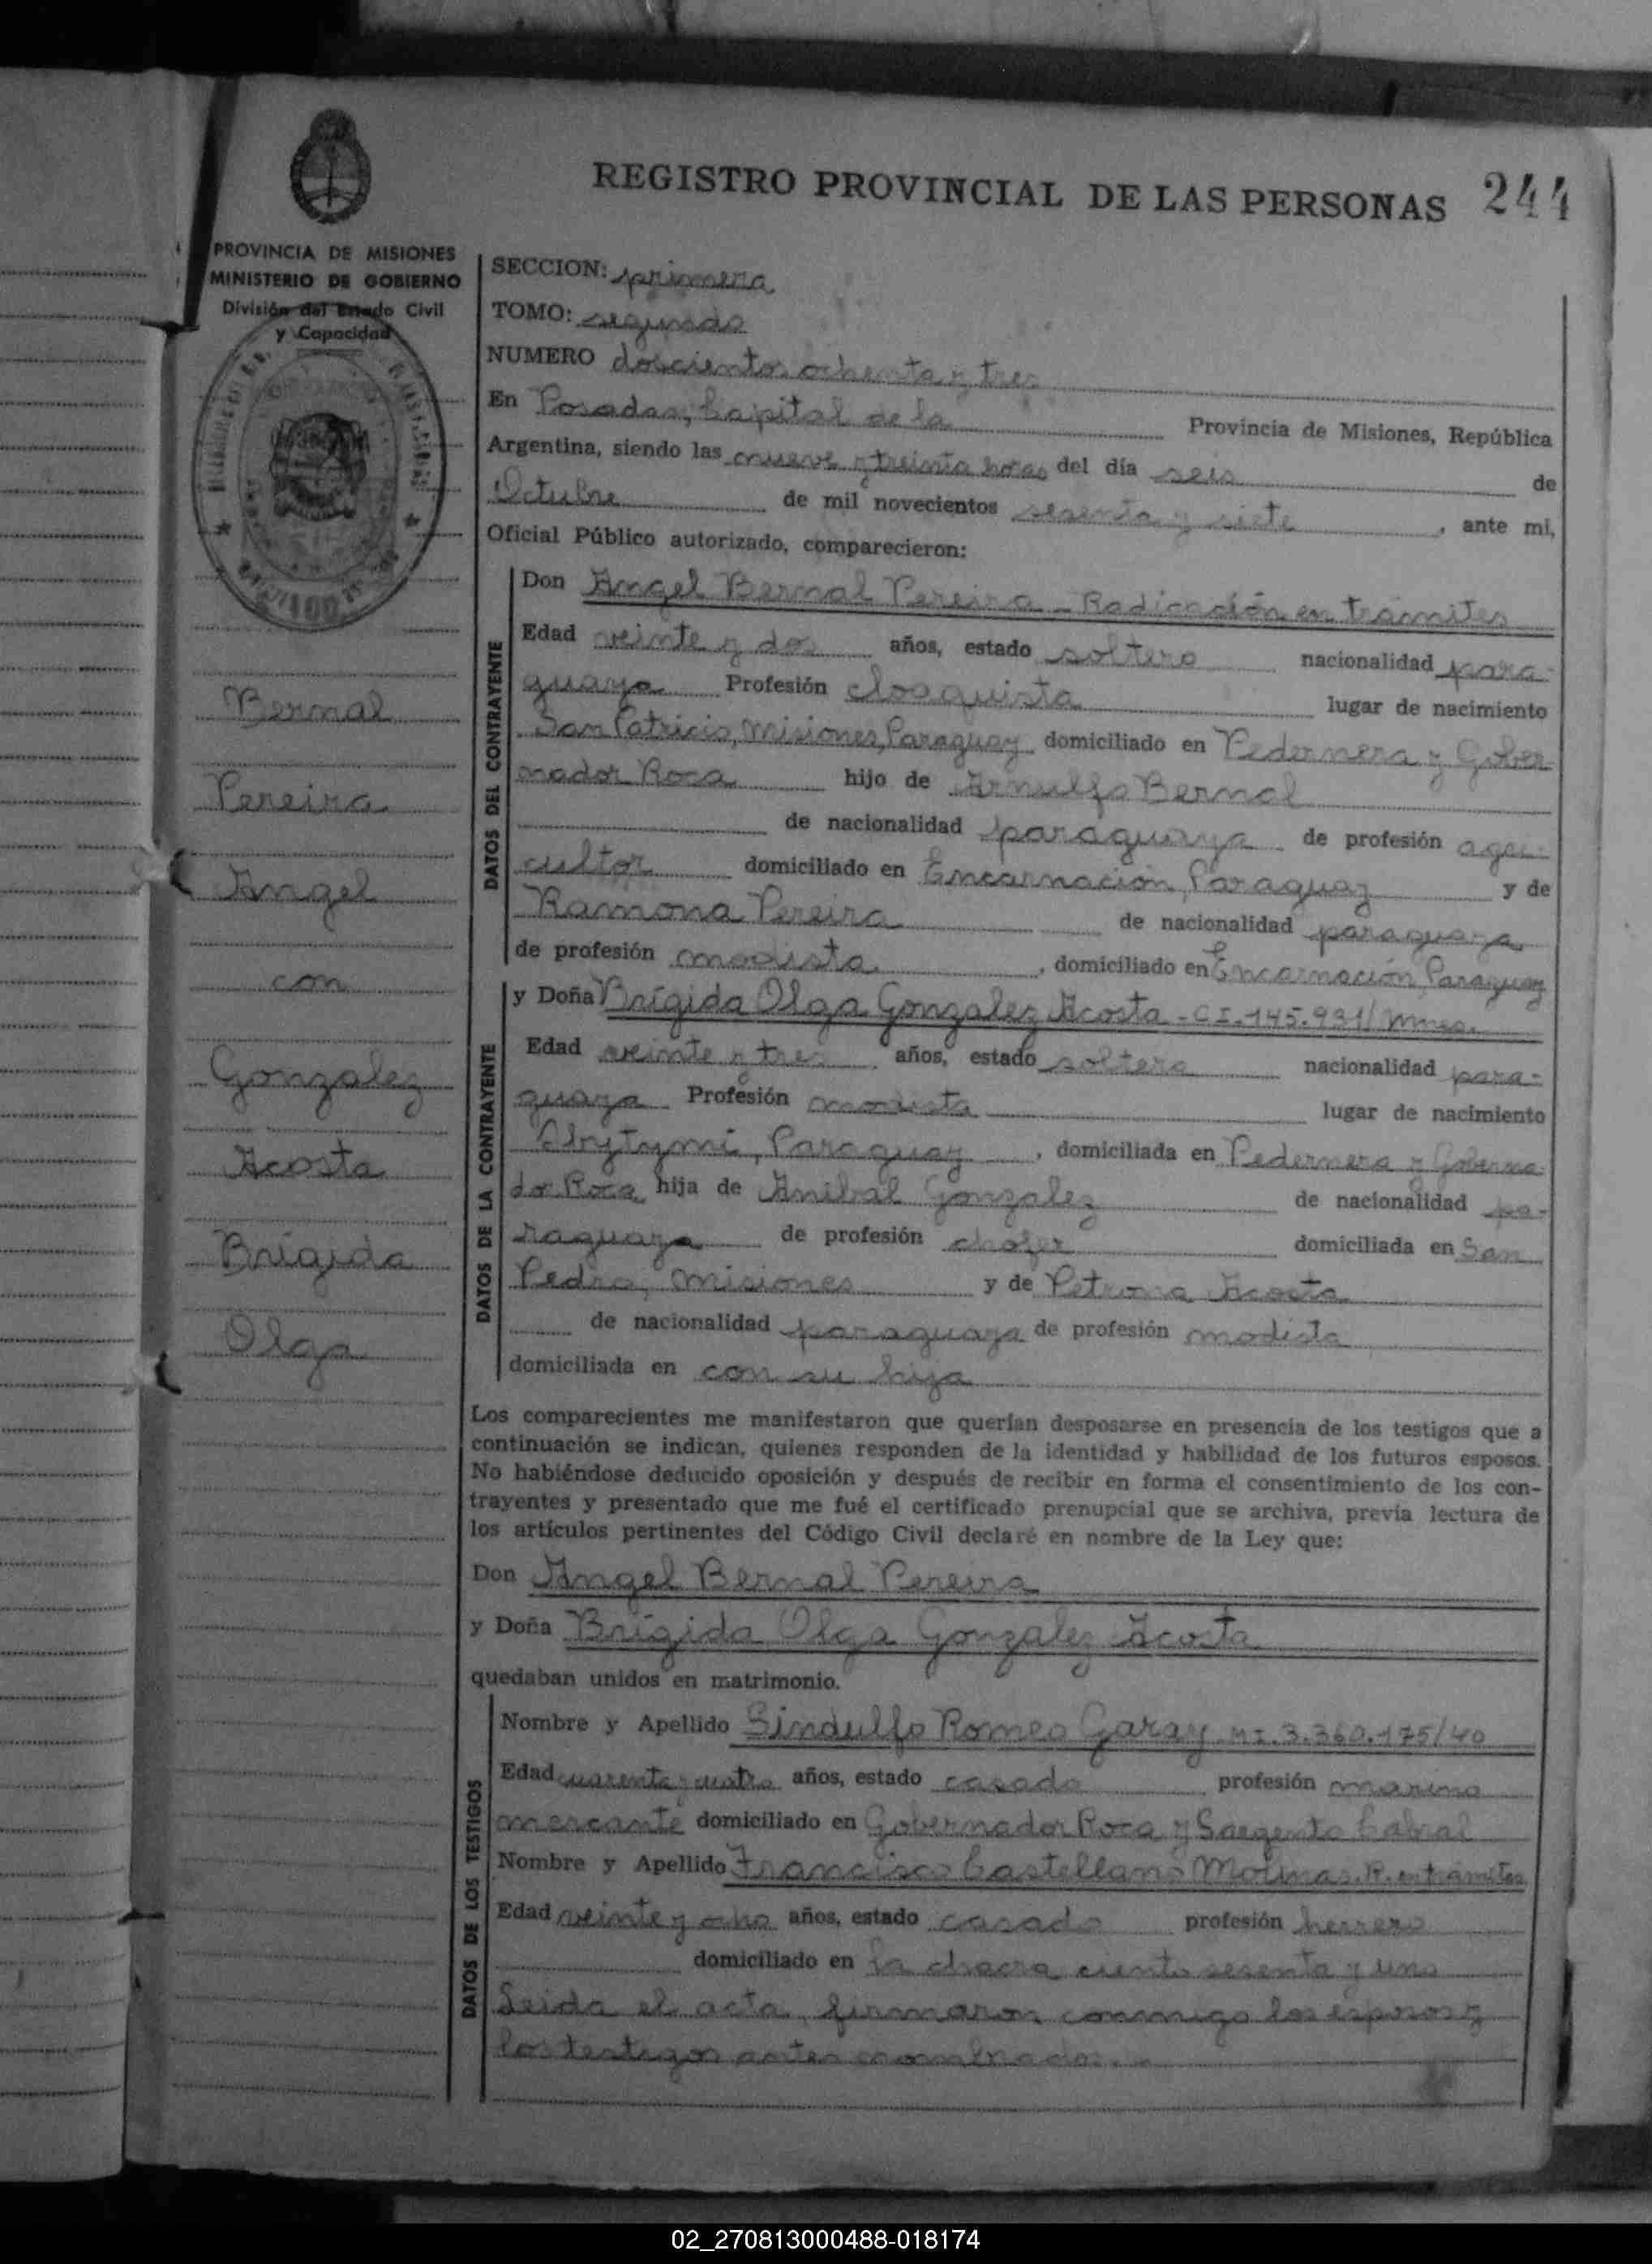 REGISTRO PROVINCIAL DE LAS PERSONAS 244
PROVINCIA DE MISIONES
MINISTERIO DE GOBIERNO
División del Estado Civil
y Capacidad
Bernal
Pereira
Angel
con
Gonzalez
Acosta
Brígida
Olga
SECCION: primera
TOMO: segundo
NUMERO doscientos ochenta y tres
En Posadas, Capital de la Provincia de Misiones, República
Argentina, siendo las nueve y treinta horas del día seis de
Octubre de mil novecientos sesenta y siete, ante mi,
Oficial Público autorizado, comparecieron:
DATOS DEL CONTRAYENTE
Don Angel Bernal Pereira - Radicación en trámites
Edad veinte y dos años, estado soltero nacionalidad para-
guaya Profesión cloaquista lugar de nacimiento
San Patricio, Misiones, Paraguay domiciliado en Pedernera y Gober
nador Roca hijo de Arnulfo Bernal
de nacionalidad paraguaya de profesión agri-
cultor domiciliado en Encarnación, Paraguay y de
Ramona Pereira de nacionalidad paraguaya
de profesión modista, domiciliado en Encarnación, Paraguay
DATOS DE LA CONTRAYENTE
y Doña Brígida Olga Gonzalez Acosta - CI. 145.931/ Mnes.
Edad veinte y tres años, estado soltera nacionalidad para-
guaya Profesión modista lugar de nacimiento
Ybytymí, Paraguay, domiciliada en Pedernera y Goberna-
dor Roca hija de Anibal Gonzalez de nacionalidad pa-
raguaya de profesión chofer domiciliada en San
Pedro, Misiones y de Petrona Acosta
de nacionalidad paraguaya de profesión modista
domiciliada en con su hija
Los comparecientes me manifestaron que querían desposarse en presencia de los testigos que a
continuación se indican, quienes responden de la identidad y habilidad de los futuros esposos.
No habiéndose deducido oposición y después de recibir en forma el consentimiento de los con-
trayentes y presentado que me fué el certificado prenupcial que se archiva, previa lectura de
los artículos pertinentes del Código Civil declaré en nombre de la Ley que:
Don Angel Bernal Pereira
y Doña Brígida Olga Gonzalez Acosta
quedaban unidos en matrimonio.
DATOS DE LOS TESTIGOS
Nombre y Apellido Sindulfo Romeo Garay MI. 3.360.175/40
Edad cuarenta y cuatro años, estado casado profesión marino
mercante domiciliado en Gobernador Roca y Sargento Cabral
Nombre y Apellido Francisco Castellano Molinas. R. en trámites
Edad veinte y ocho años, estado casado profesión herrero
domiciliado en la chacra ciento sesenta y uno
Leida el acta, firmaron conmigo los esposos y
los testigos antes nombrados.
02_270813000488-018174